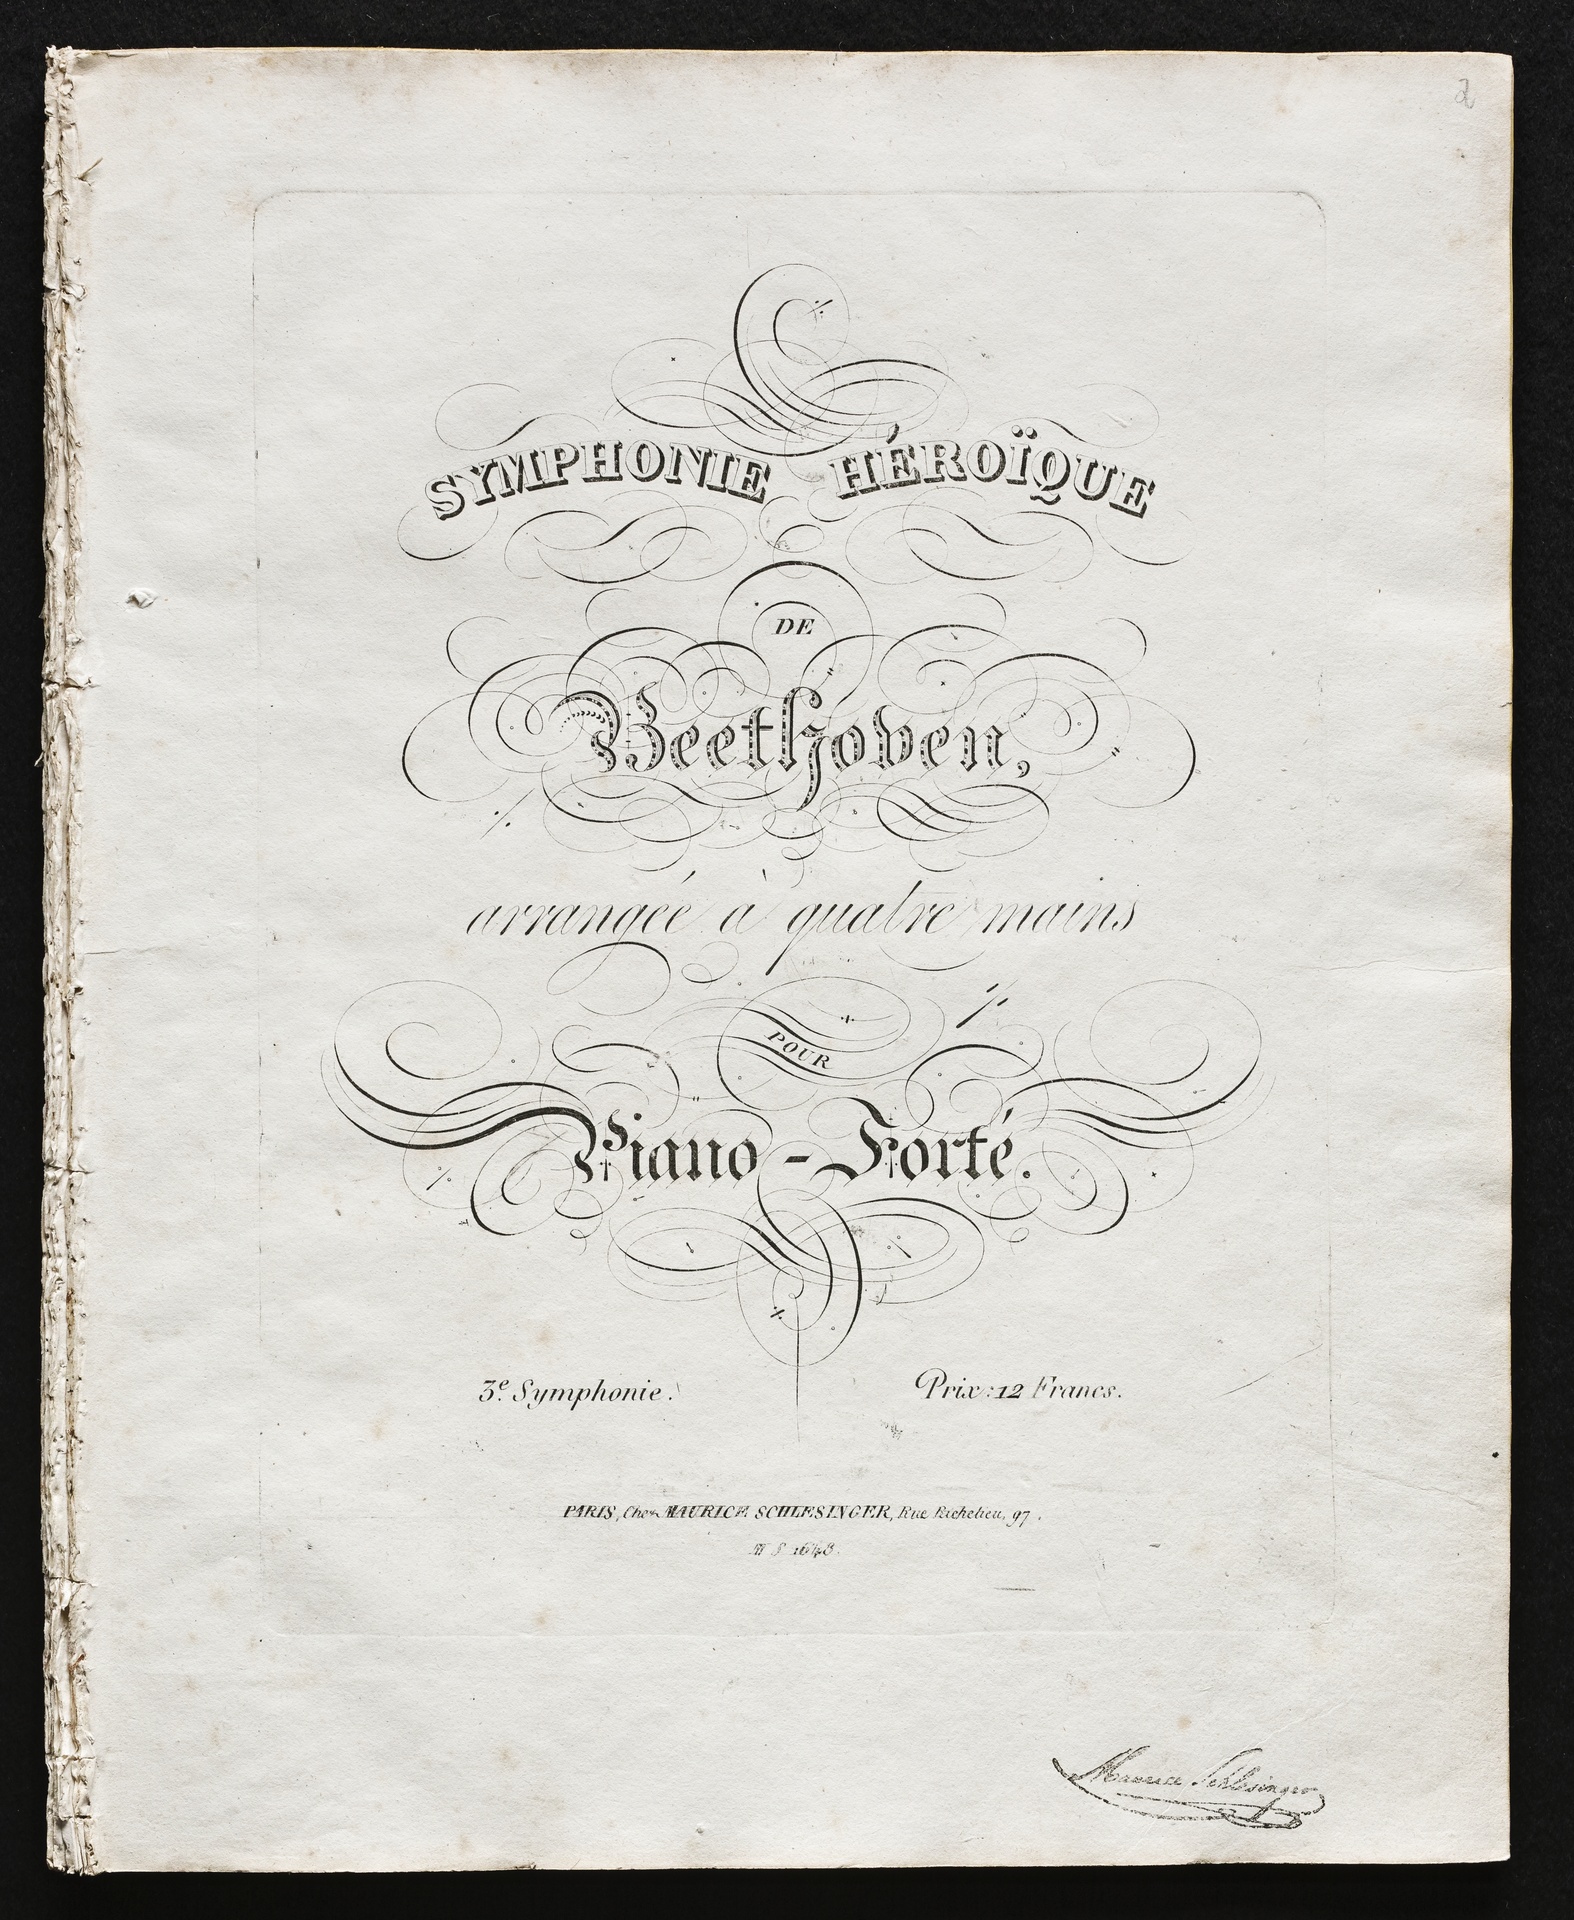 2
SYMPHONIE HÉROÏQUE
DE
Beethoven,
arrangée à quatre mains
POUR
Piano-Forté.
3e. Symphonie.
Prix: 12 Francs.
PARIS, Chez MAURICE SCHLESINGER, Rue Richelieu, 97.
M S
Maurice Schlesinger